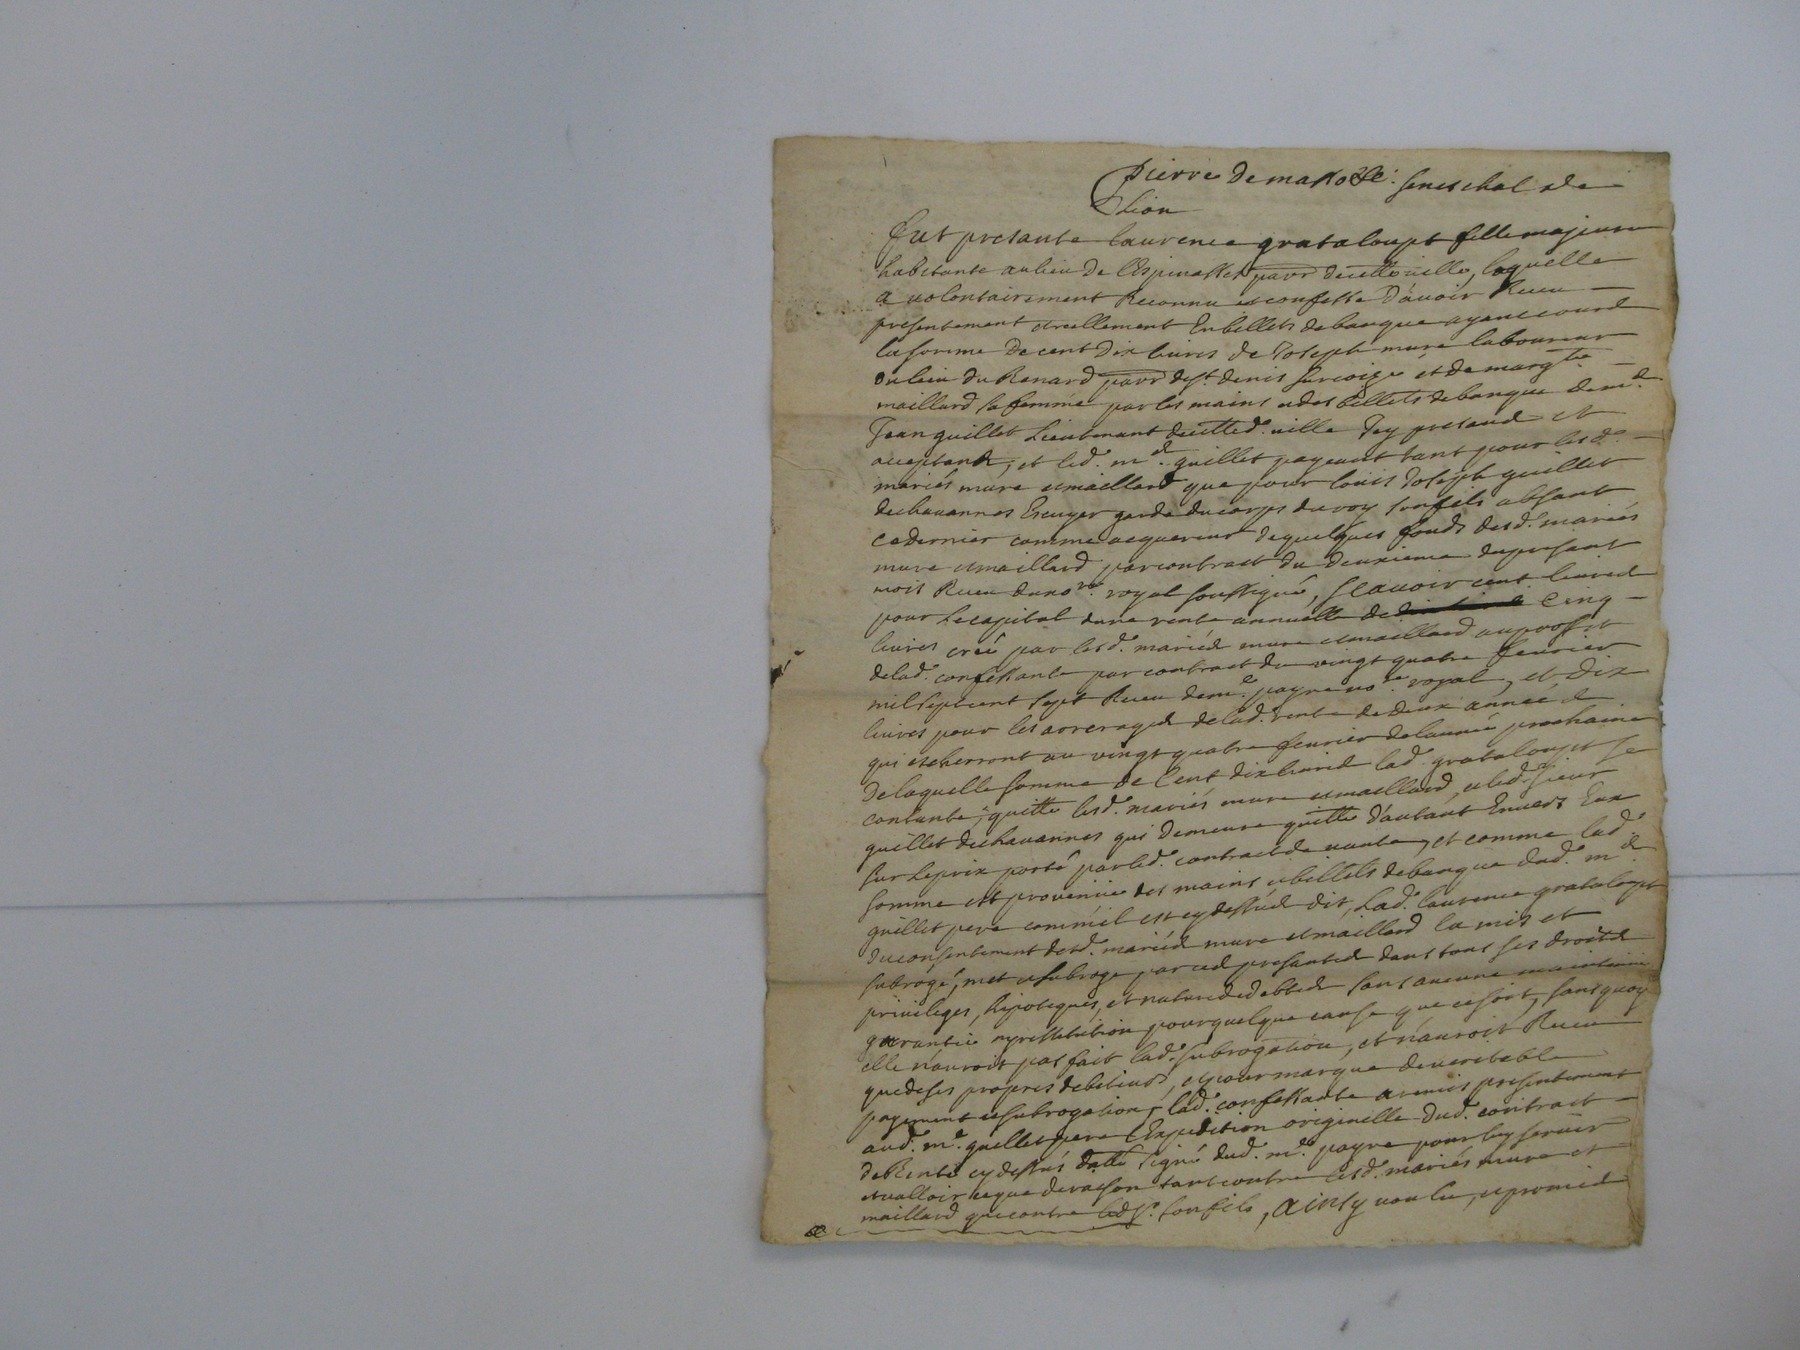 pierre de masso Sr. seneschal de
Lion
fut presante laurence grataloupt fille majeure
habitante au lieu de lespinasse parr. de cette ville, laquelle
a volontairement Reconnu et confessé d'avoir Receu
presentement et reellement En billets de banque ayant cours
la somme de cent dix livres de Joseph mure laboureur
du lieu du Renard parr. de st. denis sur coize et de margte.
maillard sa femme par les mains et des billets de banque de me.
Jean guillet Lieutenant de cetted. ville Icy presand et
acceptant, et led. me. guillet payeant tant pour lesd.
mariés mure et maillard que pour louis Joseph guillet
dechavannes Escuyer garde du corps du roy son fils absant
ce dernier comme acquereur de quelques fonds desd. mariés
mure et maillard par contract du deuxieme du present
mois Receu du nore. royal soussigné, scavoir cent livres
pour le capital dune rente annuelle de cinq
livres créé par lesd. mariés mure et maillard au proffit
de lad. confessante par contract du vingt quatre fevrier
mil sept cent sept Receu de me. payre nore. royal, et dix
livres pour les arrerages de lad. rente de deux année
qui escherront au vingt quatre fevrier de lannée prochaine
De laquelle somme de Cent dix livres lad. grataloupt se
contante, quitte lesd. mariés mure et maillard, et led. sieur
guillet dechavannes qui demeure quitte d'autant Envers Eux
sur le prix porté par led. contract de vante, et comme lad.
somme est provenüe des mains et billets de banque dud. me.
guillet pere comme il est cy dessus dit, Lad. laurence grataloupt
du consentement desd. mariés mure et maillard la mis et
subrogé, met et subroge par ces presantes dans tous ses droits
privileges, hipoteques, et nature de debtes sans aucune maintenüe
garantie ny restitution pour quelque cause que ce soit, sans quoy
elle n'auroit pas fait lad. subrogation, et n'auroit Receu
que de ses propres debiteurs, et pour marque de veritable
payement et subrogation, lad. confessante a remis presentement
aud. me. guillet pere l'Expedition originelle dud. contract
de Rente cy dessus datté signé dud. me. payre pour luy servir
et valloir ce que de raison tant contre lesd. mariés mure et
maillard que contre led. sr. son fils, ainsy voulu, et promis